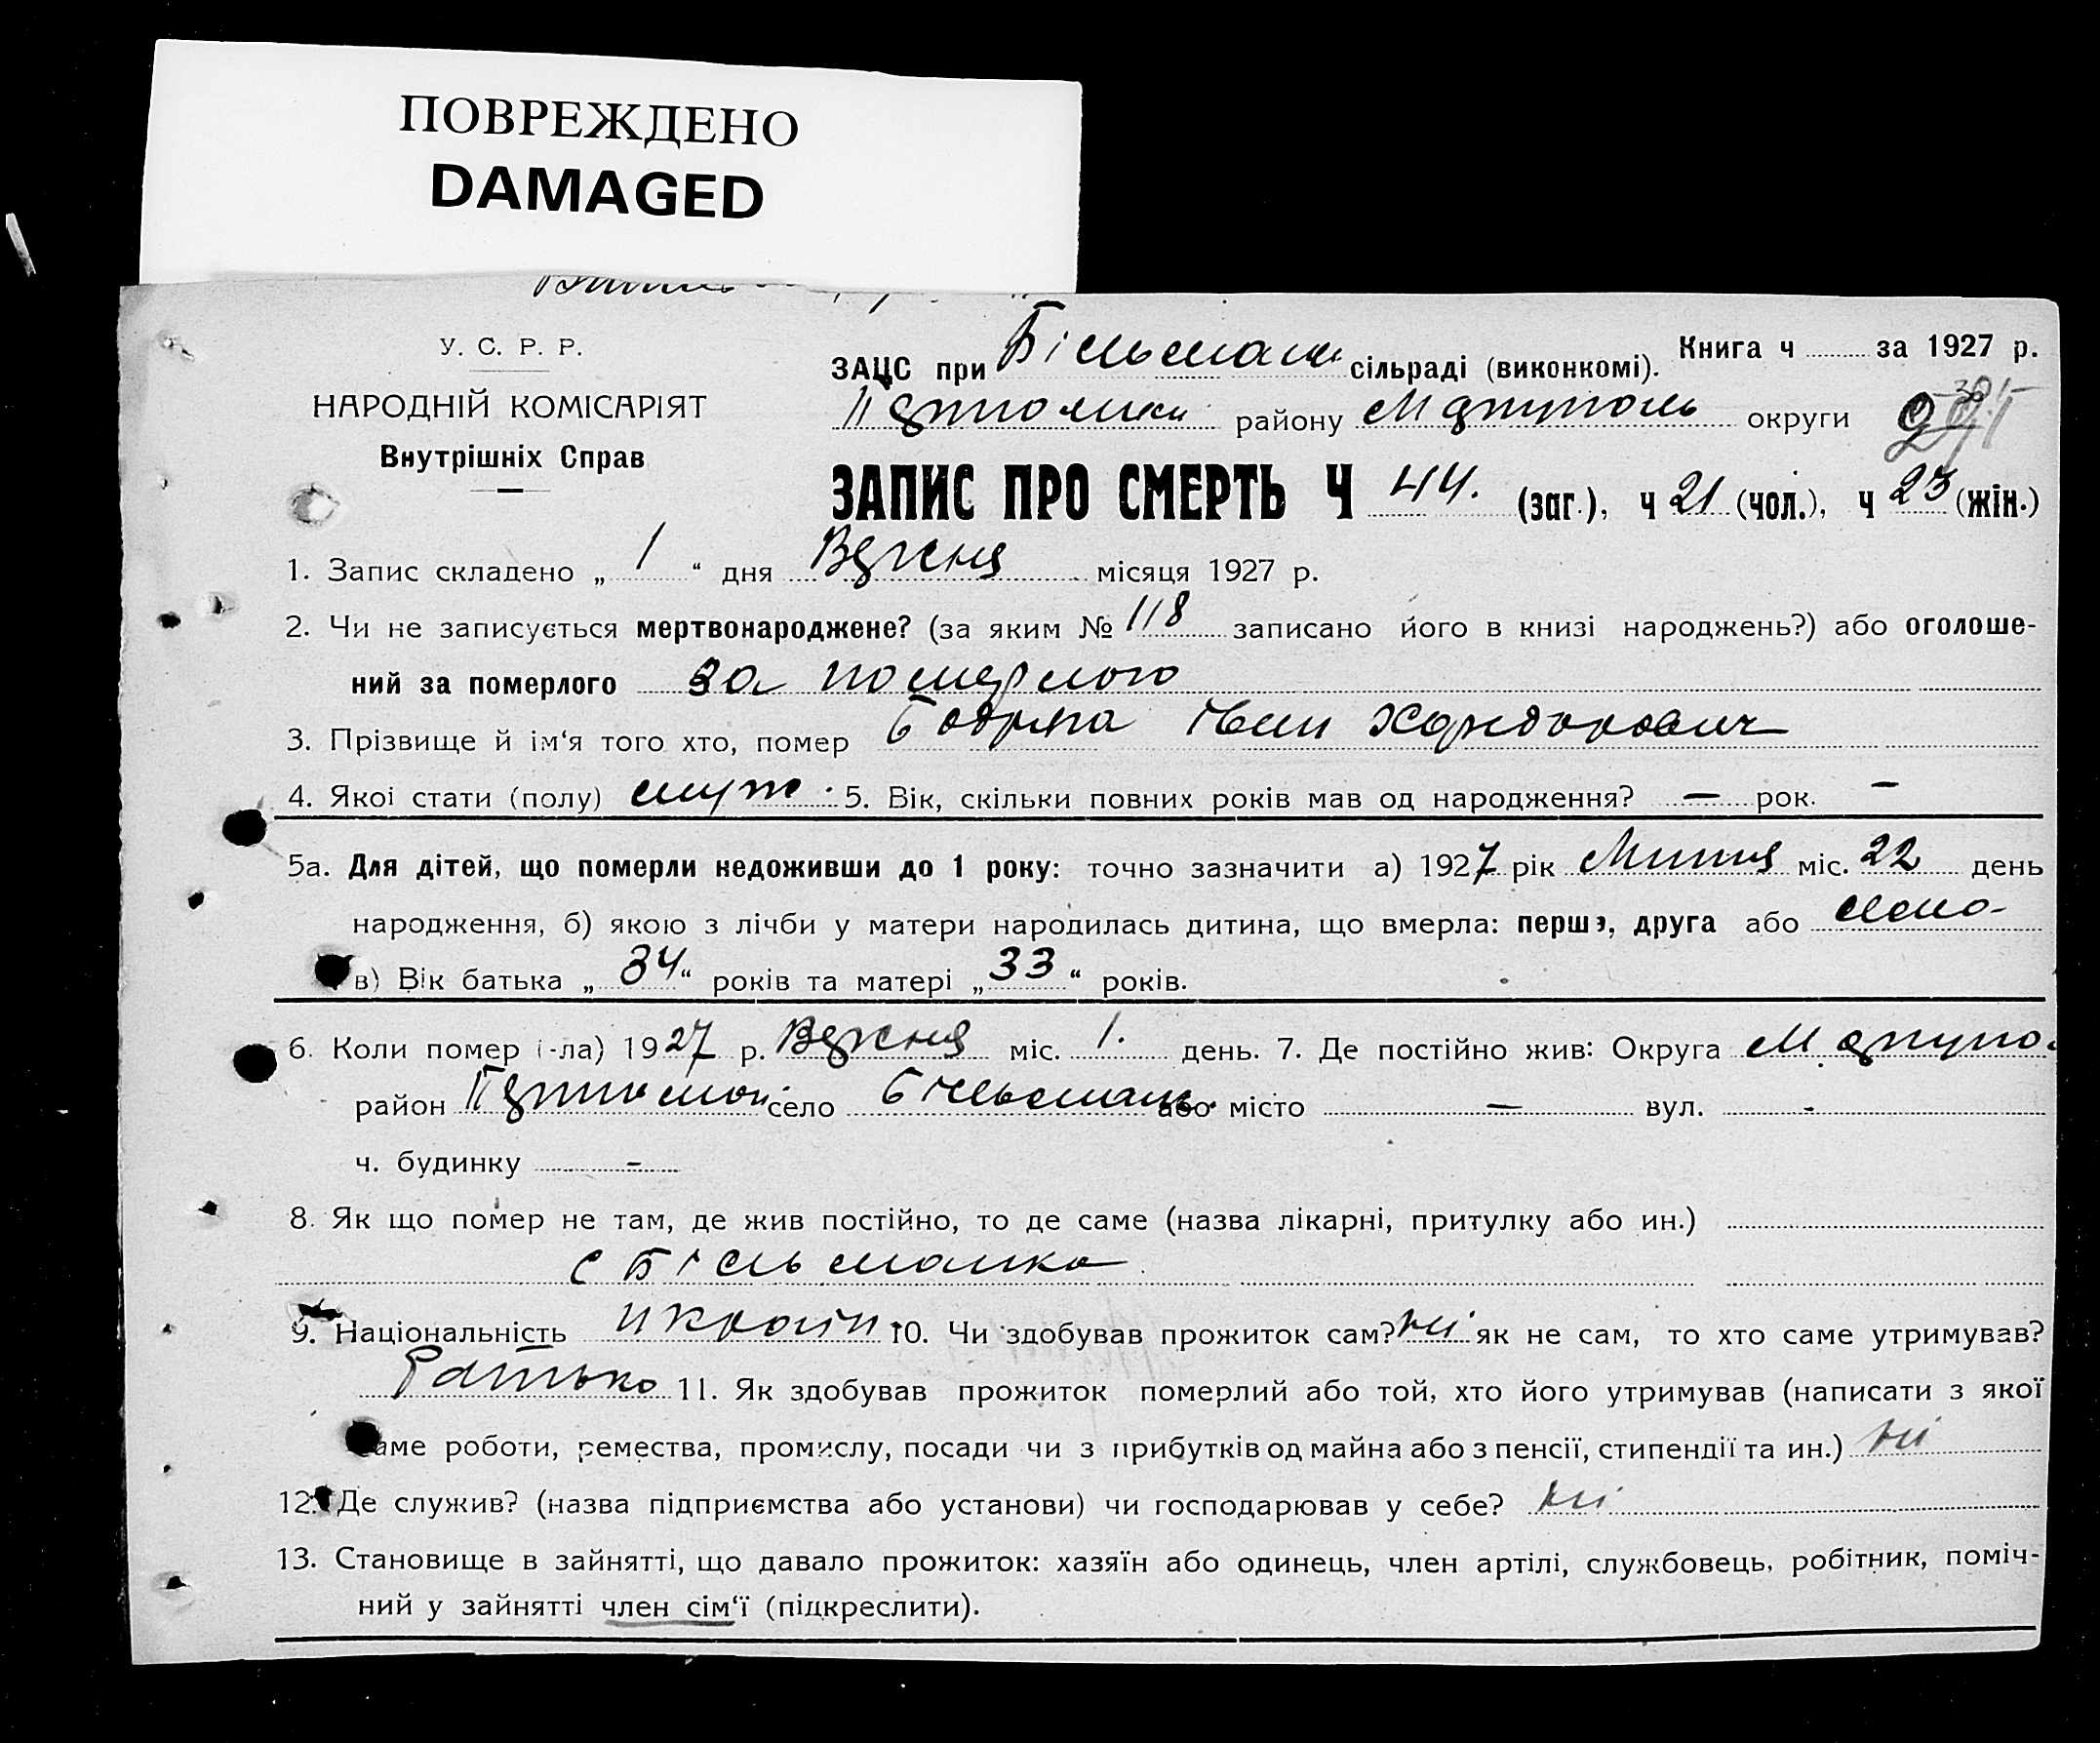 ПОВРЕЖДЕНО
DAMAGED
У. С. Р. Р.
НАРОДНІЙ КОМІСАРІЯТ
Внутрішніх Справ
Книга ч за 1927 р.
ЗАЦС при Більмань сільраді (виконкомі).
району Маріуполь округи
ЗАПИС ПРО СМЕРТЬ Ч 44. (заг.), ч 21 (чол.), ч 23 (жін.)
1. Запис складено „ 1 “ дня Вересня місяця 1927 р.
2. Чи не записується мертвонароджене? (за яким № 118 записано його в книзі народжень?) або оголоше-
ний за померлого за померлого
3. Прізвище й ім‘я того хто, помер
4. Якої стати (полу) муж. 5. Вік, скільки повних років мав од народження? — рок. –
5а. Для дітей, що померли недоживши до 1 року: точно зазначити а) 1927 рік Липня міс. 22 день
народження, б) якою з лічби у матери народилась дитина, що вмерла: перша, друга або
в) Вік батька „ 34 “ років та матері „ 33 “ років.
6. Коли помер (-ла) 1927 р. Вересня міс. 1. день. 7. Де постійно жив: Округа Маріупо.
район село Більмань або місто — вул. -
ч. будинку -
8. Як що помер не там, де жив постійно, то де саме (назва лікарні, притулку або ин.)
с Більманка
9. Національність україн. 10. Чи здобував прожиток сам? ні як не сам, то хто саме утримував?
Батько 11. Як здобував прожиток померлий або той, хто його утримував (написати з якої
саме роботи, ремества, промислу, посади чи з прибутків од майна або з пенсії, стипендії та ин.) ні
12. Де служив? (назва підприємства або установи) чи господарював у себе? ні
13. Становище в зайнятті, що давало прожиток: хазяїн або одинець, член артілі, службовець, робітник, поміч-
ний у зайнятті член сім‘ї (підкреслити).